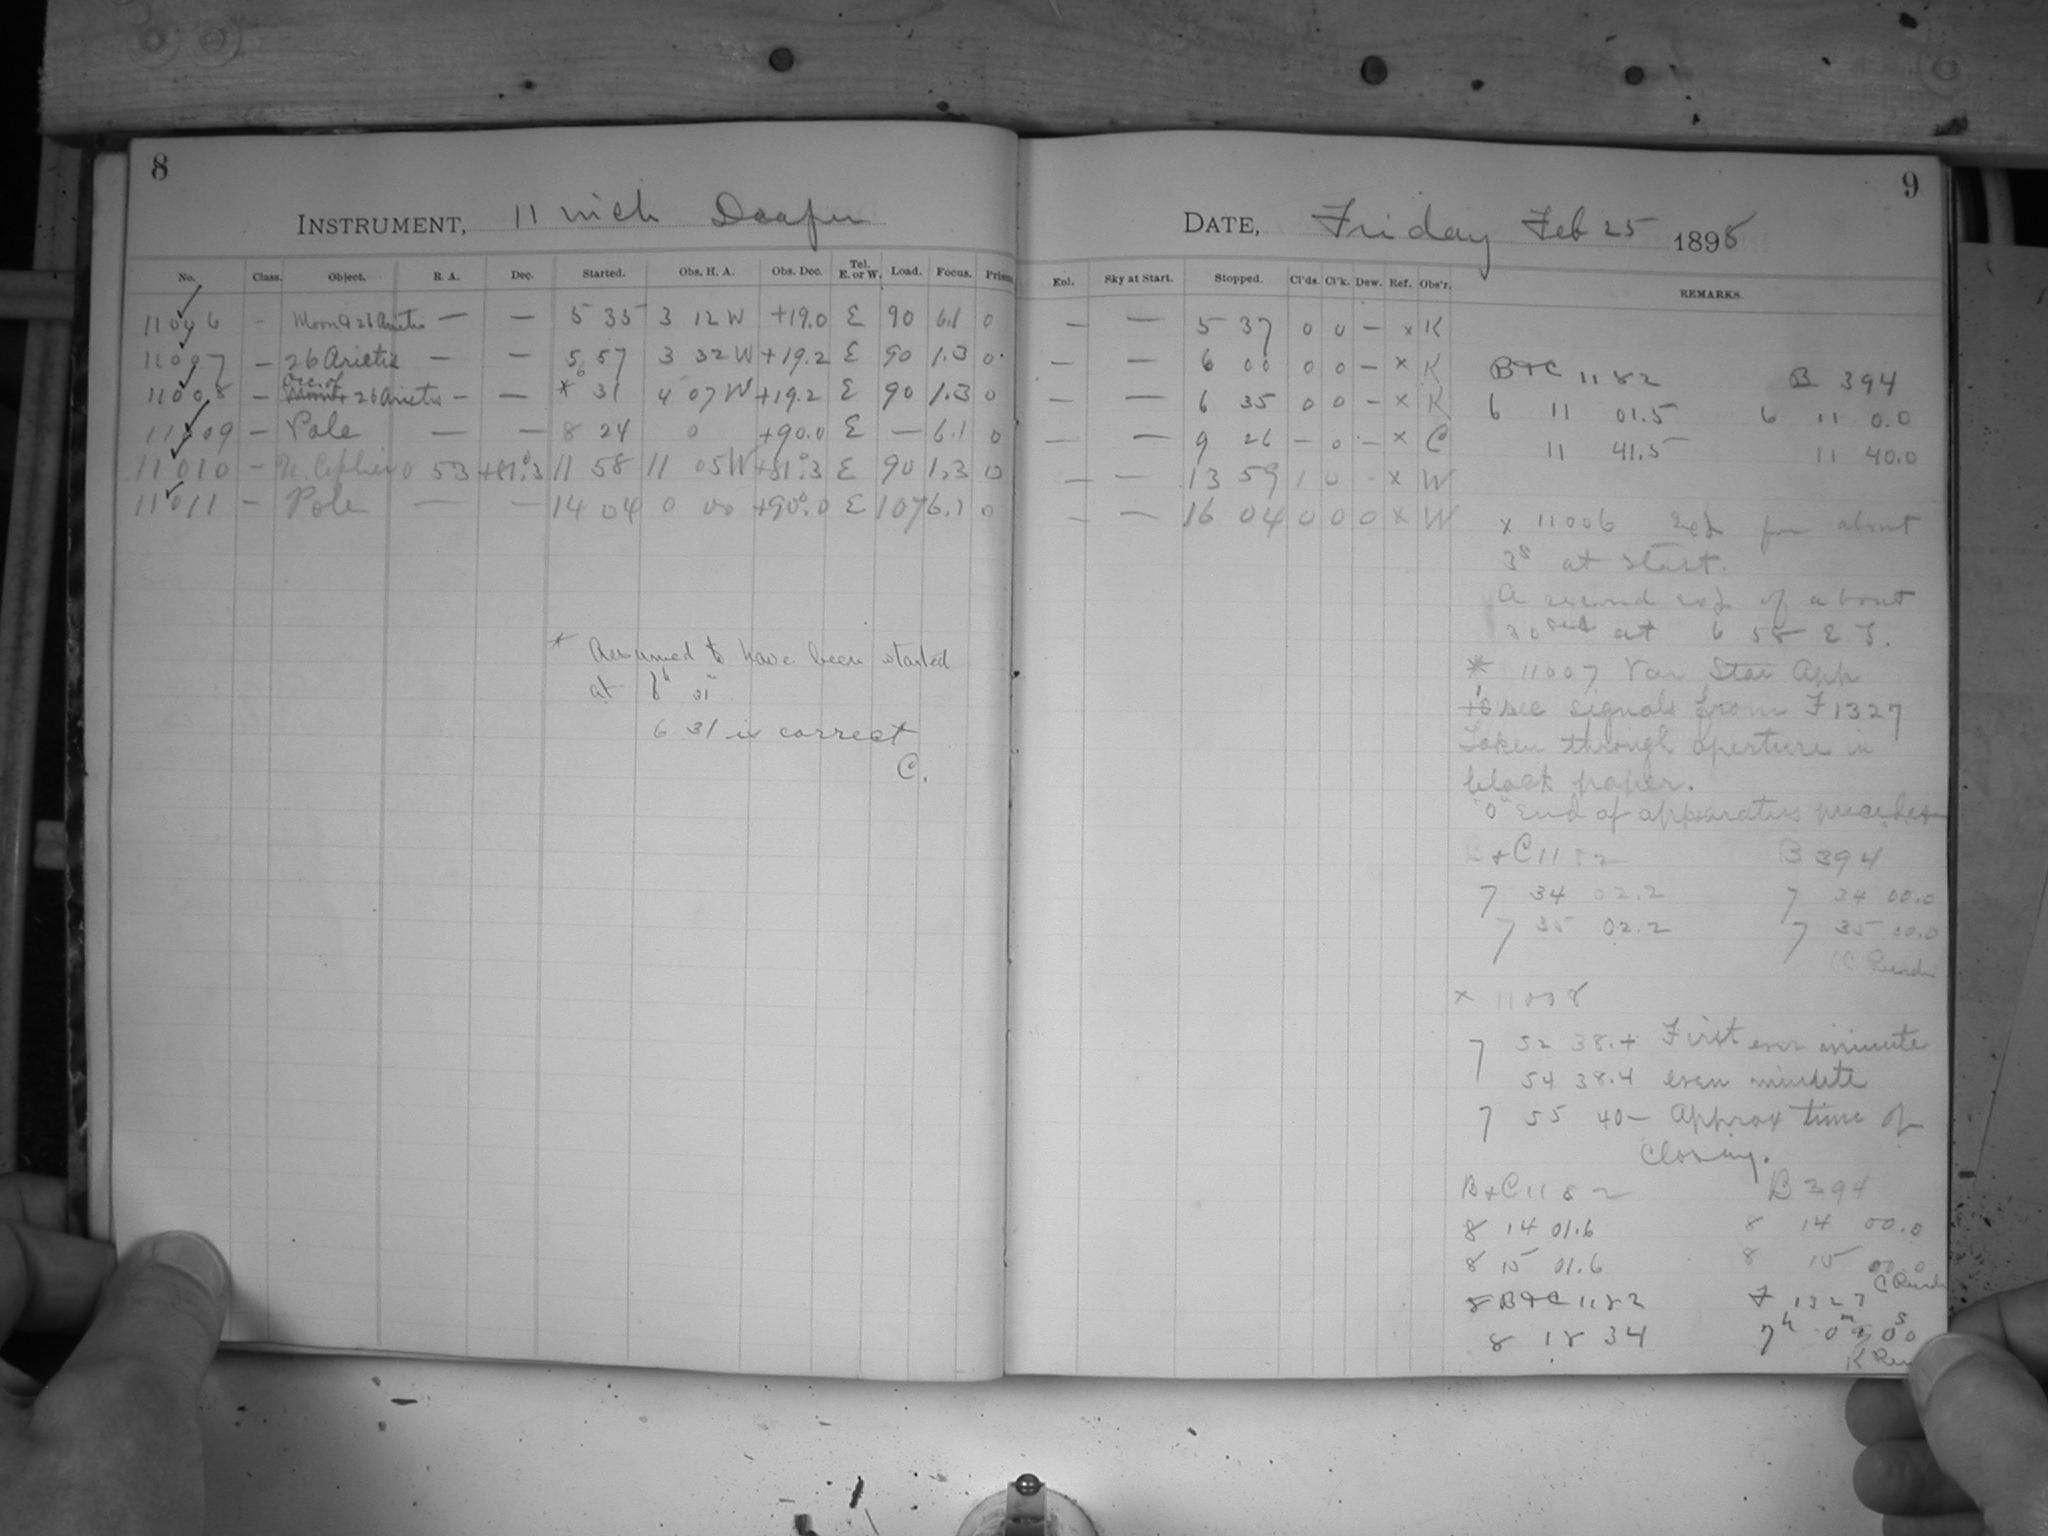 8
INSTRUMENT, 11 inch Draper
No. Class. Object. R. A. Dec. Started. Obs. H. A. Obs. Dec. Tel. E. or W. Load. Focus. Prism
11006 – Moon & 26 Arietis — — 5 35 3 12 W +19.0 E 90 6.1 0
11007 – 26 Arietis — — 5 57 3 32 W +19.2 E 90 1.3 0
11008 – Occ. of 26 Arietis – — * 6 31 4 07 W +19.2 E 90 1.3 0
11009 – Pole — — 8 24 0 +90.0 E — 6.1 0
11010 – U. Cephei 0 53 +81°.3 11 58 11 05 W +81°.3 E 90 1.3 0
11011 – Pole — — 14 04 0 00 +90°.0 E 107 6.1 0
* Assumed to have been started
at 6h 31m
6 31 is correct
C.
9
DATE, Friday Feb 25 1898
Enl. Sky at Start. Stopped. Cl'ds. Cl'k. Dew. Ref. Obs'r. REMARKS.
— — 5 37 0 0 – x K
— — 6 00 0 0 – x K
— — 6 35 0 0 – x K
— — 9 26 – 0 – x C
— — 13 59 1 0 - x W
— — 16 04 0 0 0 x W
B+C 1182 B 394
6 11 01.5 6 11 0.0
11 41.5 11 40.0
x 11006 Exp for about
3s at start.
A second exp of about
30 sec at 6 58 E T.
* 11007 Var Star App
to see signals from F 1327
Taken through aperture in
black paper.
"0" End of apparatus precedes
B+C 1182 B 394
7 34 02.2 7 34 00.0
7 35 02.2 7 35 00.0
x 11008
7 52 38.+ First even minute
54 38.4 even minute
7 55 40– Approx time of
closing.
B+C 1182 B 394
8 14 01.6 8 14 00.0
8 15 01.6 8 15 00.0
B+C 1182 F 1327
8 18 34